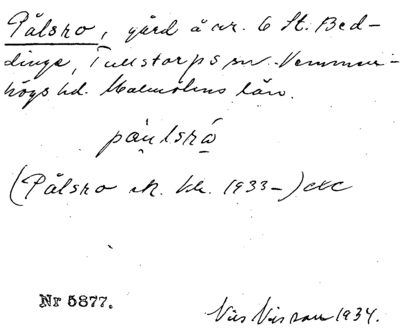 Pålsro, gård å nr. 6 St. Bed-
dinge, Tullstorps sn. Vemmen-
högs hd. Malmöhus län.
på̤ulsrå
(Pålsro ek. kr. 1933-) etc
Nr 5877.
Nils Nilsson 1934.